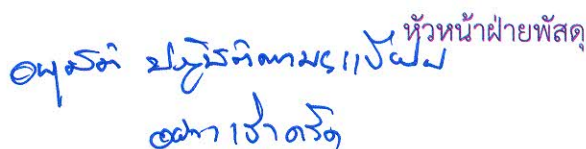 หัวหน้าฝ่ายพัสดุ
อนุมัติ ปฏิบัติตามระเบียบ
อย่างเคร่งครัด